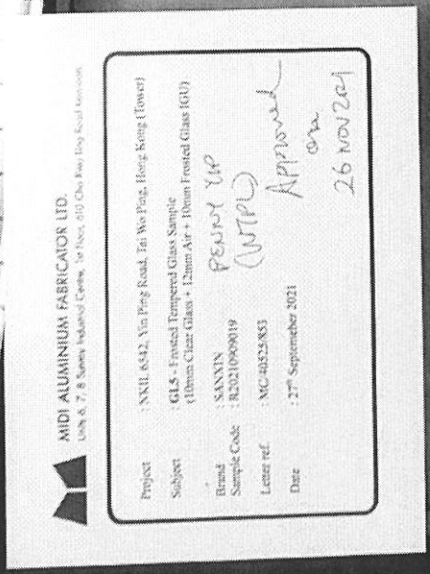 MIDI ALUMINIUM FABRICATOR LTD.
Unit 6, 7, 8 Sunray Industrial Centre, 1st Floor, 610 Cha Kwo Ling Road Kowloon
Project : NKIL 6542, Yin Ping Road, Tai Wo Ping, Hong Kong (Tower)
Subject : GL5 - Frosted Tempered Glass Sample
(10mm Clear Glass + 12mm Air + 10mm Frosted Glass IGU)
Brand : SANXIN
Sample Code : R20210909019
Letter ref. : MC/40525/853
Date : 27th Septemeber 2021
PENNY YIP
(WTPL)
Approved
on
26 NOV 2021